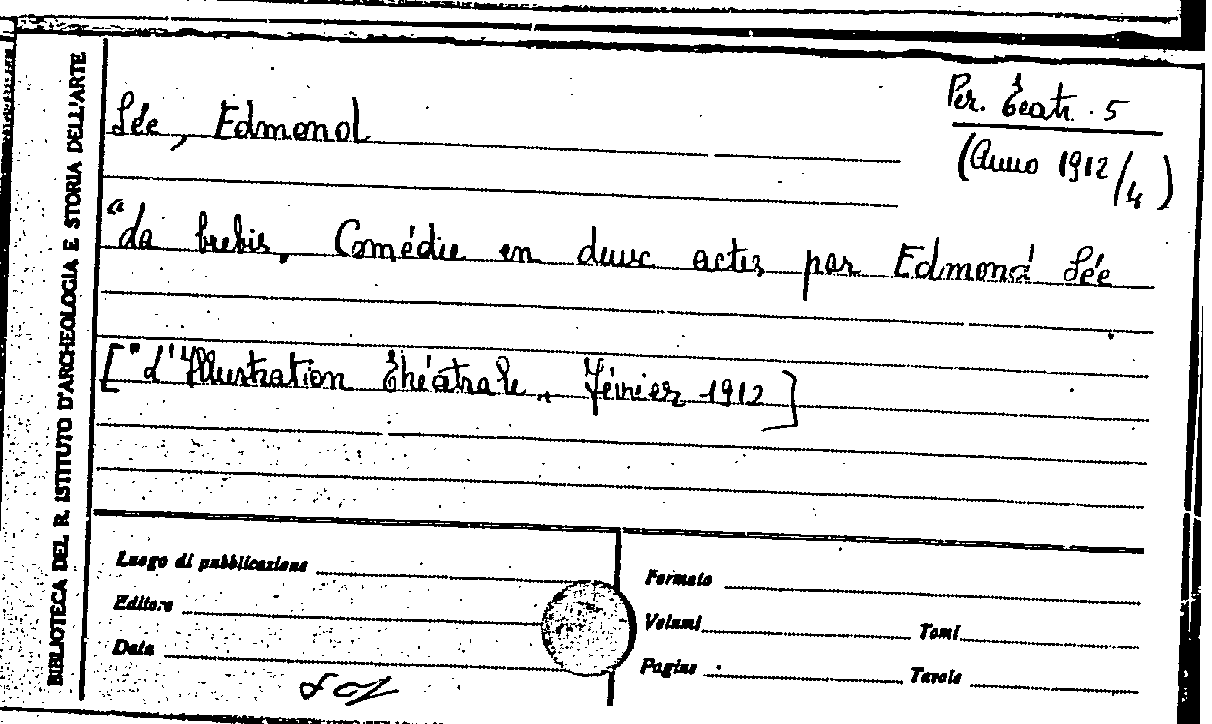 BIBLIOTECA DEL R. ISTITUTO D'ARCHEOLOGIA E STORIA DELL'ARTE
Sée, Edmond
Per. Teatr. 5
(Anno 1912/4)
"La brebis. Comédie en deux actes par Edmond Sée
["L'Illustration Théâtrale„ Février 1912]
Luogo di pubblicazione
Editore
Data
Formato
Volumi Tomi
Pagine Tavole